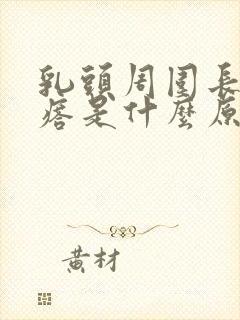 乳頭周围長
痞是什麼原
黃材